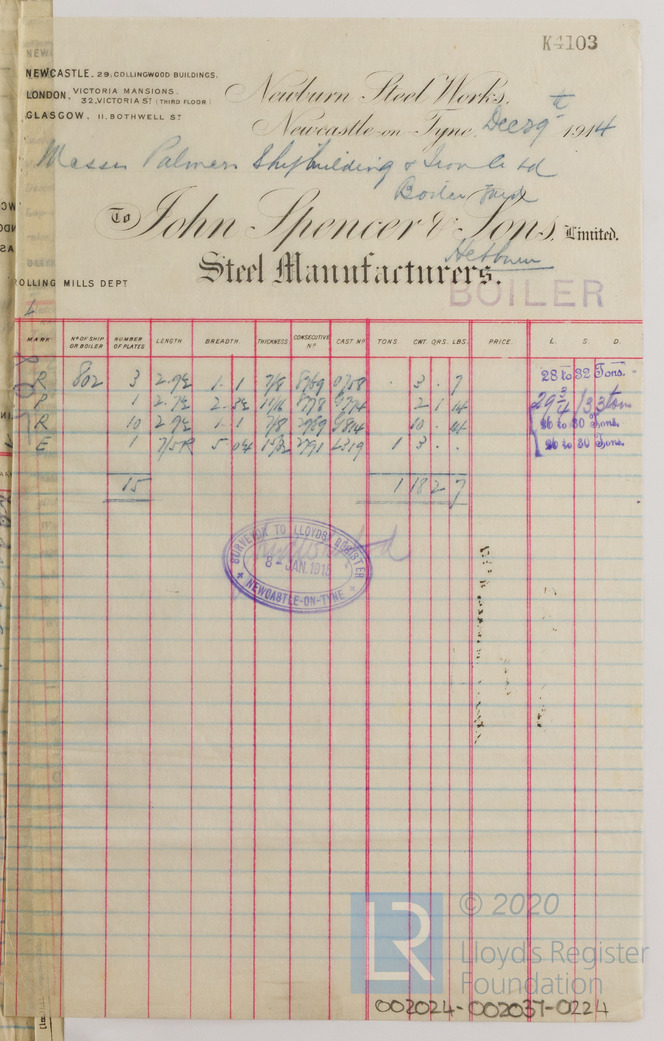 K4103
NEWCASTLE. 29, COLLINGWOOD BUILDINGS.
LONDON. VICTORIA MANSIONS.
32, VICTORIA ST (THIRD FLOOR)
GLASGOW. 11, BOTHWELL ST
Newburn Steel Works,
Newcastle-on-Tyne, Dec 29th 1914
Messrs Palmers Shipbuilding & Iron Co Ld
Boiler Yard
Hebburn
To John Spencer & Sons, Limited.
Steel Manufacturers.
ROLLING MILLS DEPT
BOILER
MARK NO OF SHIP OR BOILER NUMBER OF PLATES LENGTH BREADTH. THICKNESS CONSECUTIVE NO CAST NO TONS CWT. QRS. LBS. PRICE. L. S. D.
R 802 3 1 . 1 7/8 . 3 . 7 28 to 32 Tons.
P 1 11/16 2 1 14 29 3/4 / 33 ton
R 10 1 . 1 7/8 10 . 14 26 to 30 Tons.
E 1 5 1 3 . . 26 to 30 Tons.
15 1 18 2 7
SURVEYOR TO LLOYDS REGISTER
8 - JAN. 1915
NEWCASTLE-ON-TYNE
LR
© 2020
Lloyd's Register
Foundation
002024-002037-0224